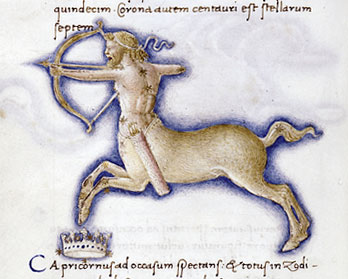 quindecim · Corona autem centauri est stellarum
septem
Capricornus ad occasum spectans: & totus in Zodi-